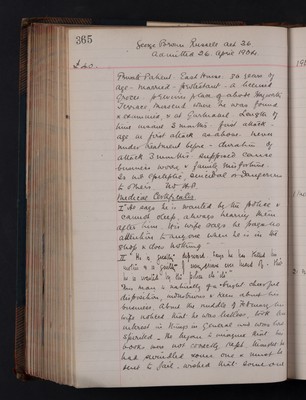 365
George Brown Russell aet 50
Admitted 26 April 1904.
Private Patient. East House. 50 years of
age - married - protestant - a licensed
Grocer - previous place of abode
Terrace, where he was found
& examined, & at Gartnavel. Length of
time insane 3 months. first attack -
age on first attack as above. never
under treatment before - duration of
attack 3 months. supposed cause
business worry & family misfortune.
Is not epileptic, suicidal or dangerous
to others.
Medical Certificates
I "He says he is wanted by the police &
cannot sleep, always hearing them
after him. His wife says he pays no
attention to anyone when he is in his
shop & does nothing"
II "He is depressed. Says he has killed his
mother & is guilty of
"This man is naturally of a bright cheerful
disposition, industrious & keen about his
business. About the middle of February, his
wife noticed that he was listless, took no
interest in things in general and was low
spirited. He began to imagine that his
books were not correctly kept, thought he
had swindled some one & must be
sent to jail. wished that some one